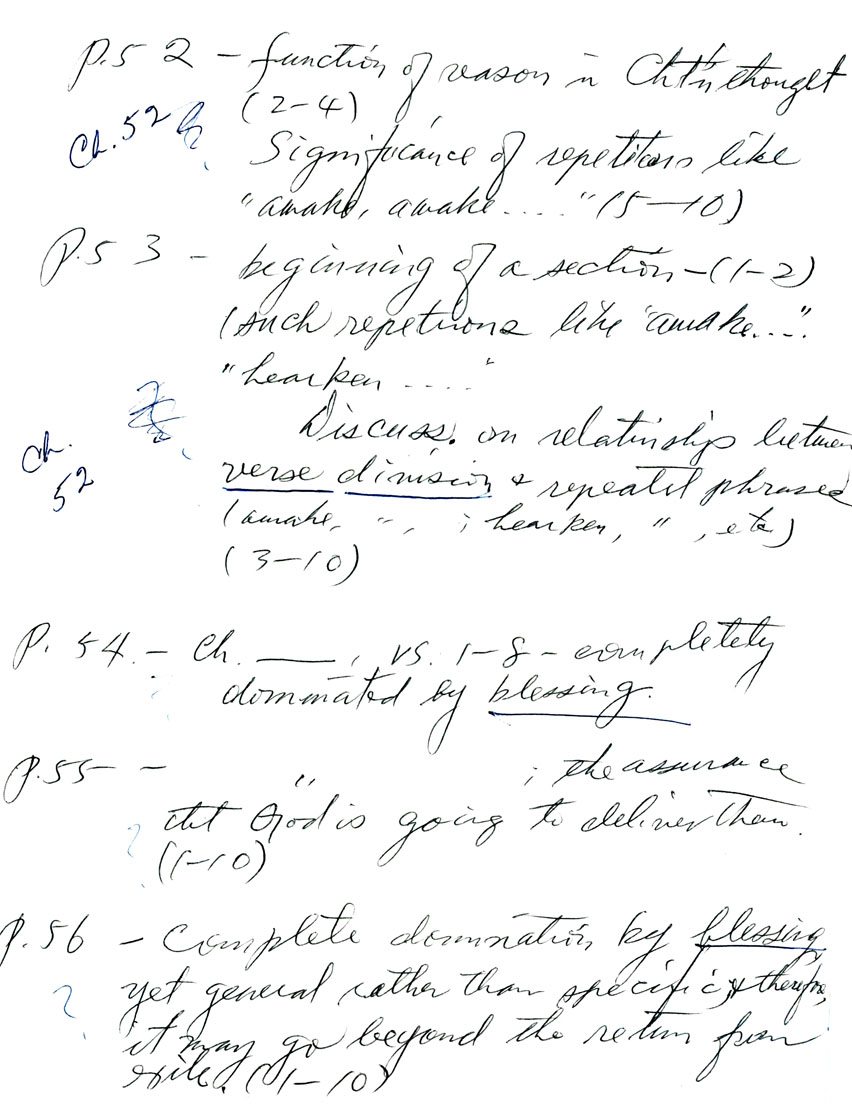 P. 52 - function of reason in Ch'tn thought
(2-4)
Ch. 52
Significance of repetitions like
"awake, awake...." (5-10)
P. 53 - beginning of a section - (1-2)
(such repetitions like "awake...."
"hearken ...."
Discuss. on relationship between
Ch. 52
verse division & repeated phrases
(awake, " , ; hearken, " , etc)
(3-10)
P. 54. - Ch. ___, vs. 1-8 - completely
dominated by blessing.
P. 55 - " ; the assurance
tht God is going to deliver them.
? (1-10)
P. 56 - Complete domination by blessing
? yet general rather than specific, & therefore,
it may go beyond the return from
exile. (1-10)